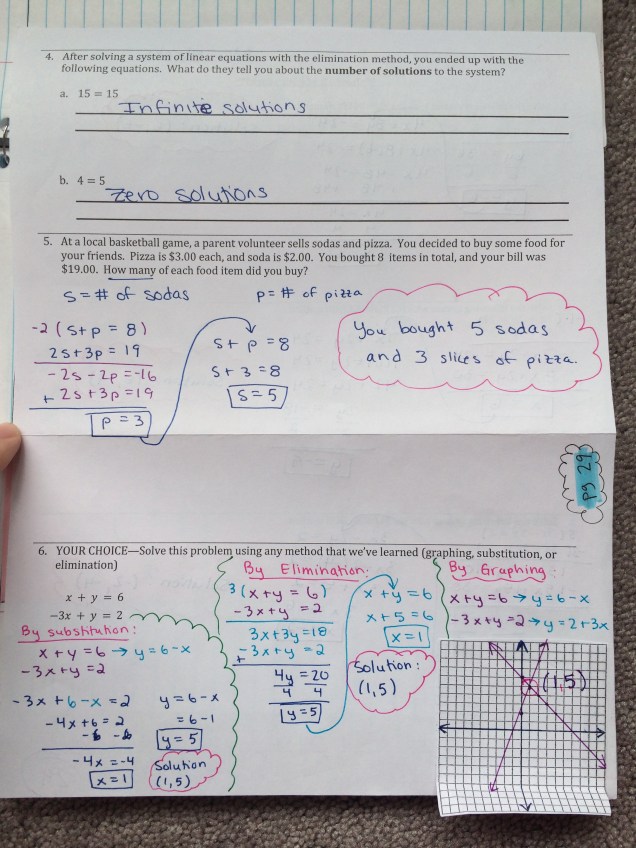 4. After solving a system of linear equations with the elimination method, you ended up with the
following equations. What do they tell you about the number of solutions to the system?
a. 15 = 15
Infinite solutions
b. 4 = 5
Zero solutions
5. At a local basketball game, a parent volunteer sells sodas and pizza. You decided to buy some food for
your friends. Pizza is $3.00 each, and soda is $2.00. You bought 8 items in total, and your bill was
$19.00. How many of each food item did you buy?
s = # of sodas
p = # of pizza
-2(s+p = 8)
2s+3p = 19
-2s-2p = -16
+ 2s+3p = 19
p = 3
s+p = 8
s+3 = 8
s = 5
You bought 5 sodas
and 3 slices of pizza.
pg 29
6. YOUR CHOICE—Solve this problem using any method that we've learned (graphing, substitution, or
elimination)
x + y = 6
-3x + y = 2
By substitution:
x+y = 6 → y = 6-x
-3x+y = 2
-3x+6-x = 2
-4x+6 = 2
-6 -6
-4x = -4
x = 1
y = 6-x
= 6-1
y = 5
Solution
(1,5)
By Elimination:
3(x+y = 6)
-3x+y = 2
3x+3y = 18
+ -3x+y = 2
4y = 20
4 4
y = 5
x+y = 6
x+5 = 6
x = 1
Solution:
(1,5)
By Graphing:
x+y = 6 → y = 6-x
-3x+y = 2 → y = 2+3x
(1,5)